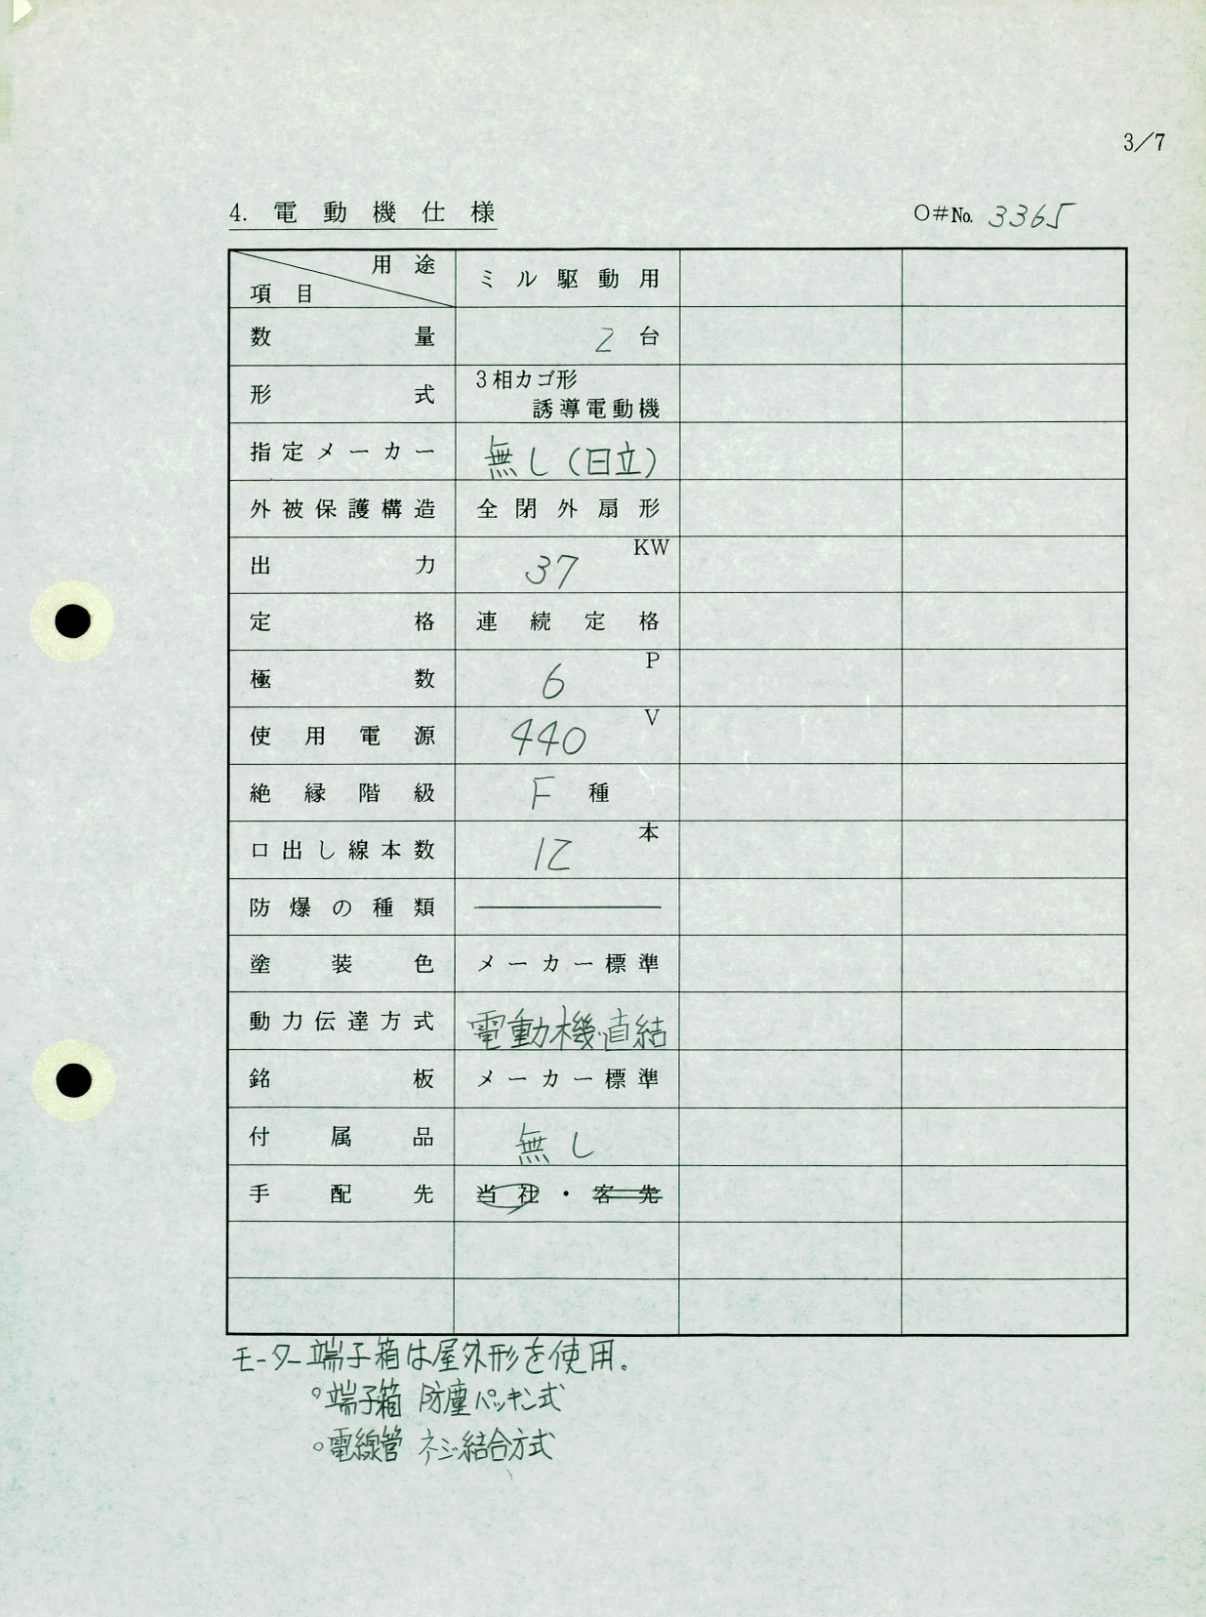 3/7
4. 電動機仕様
O#No. 3365
用途
項目
ミル駆動用
数量 2 台
形式 3相カゴ形
誘導電動機
指定メーカー 無し(日立)
外被保護構造 全閉外扇形
出力 37 KW
定格 連続定格
極数 6 P
使用電源 440 V
絶縁階級 F 種
口出し線本数 12 本
防爆の種類 ―
塗装色 メーカー標準
動力伝達方式 電動機直結
銘板 メーカー標準
付属品 無し
手配先 当社・客先
モーター端子箱は屋外形を使用。
○端子箱 防塵パッキン式
○電線管 ネジ結合方式